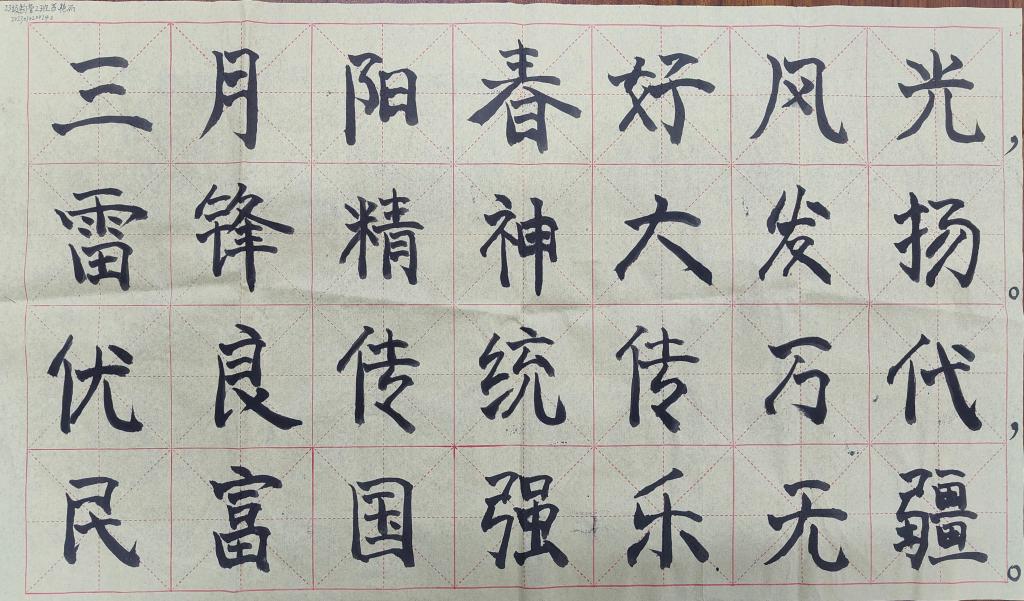 三月阳春好风光，
雷锋精神大发扬。
优良传统传万代，
民富国强乐无疆。